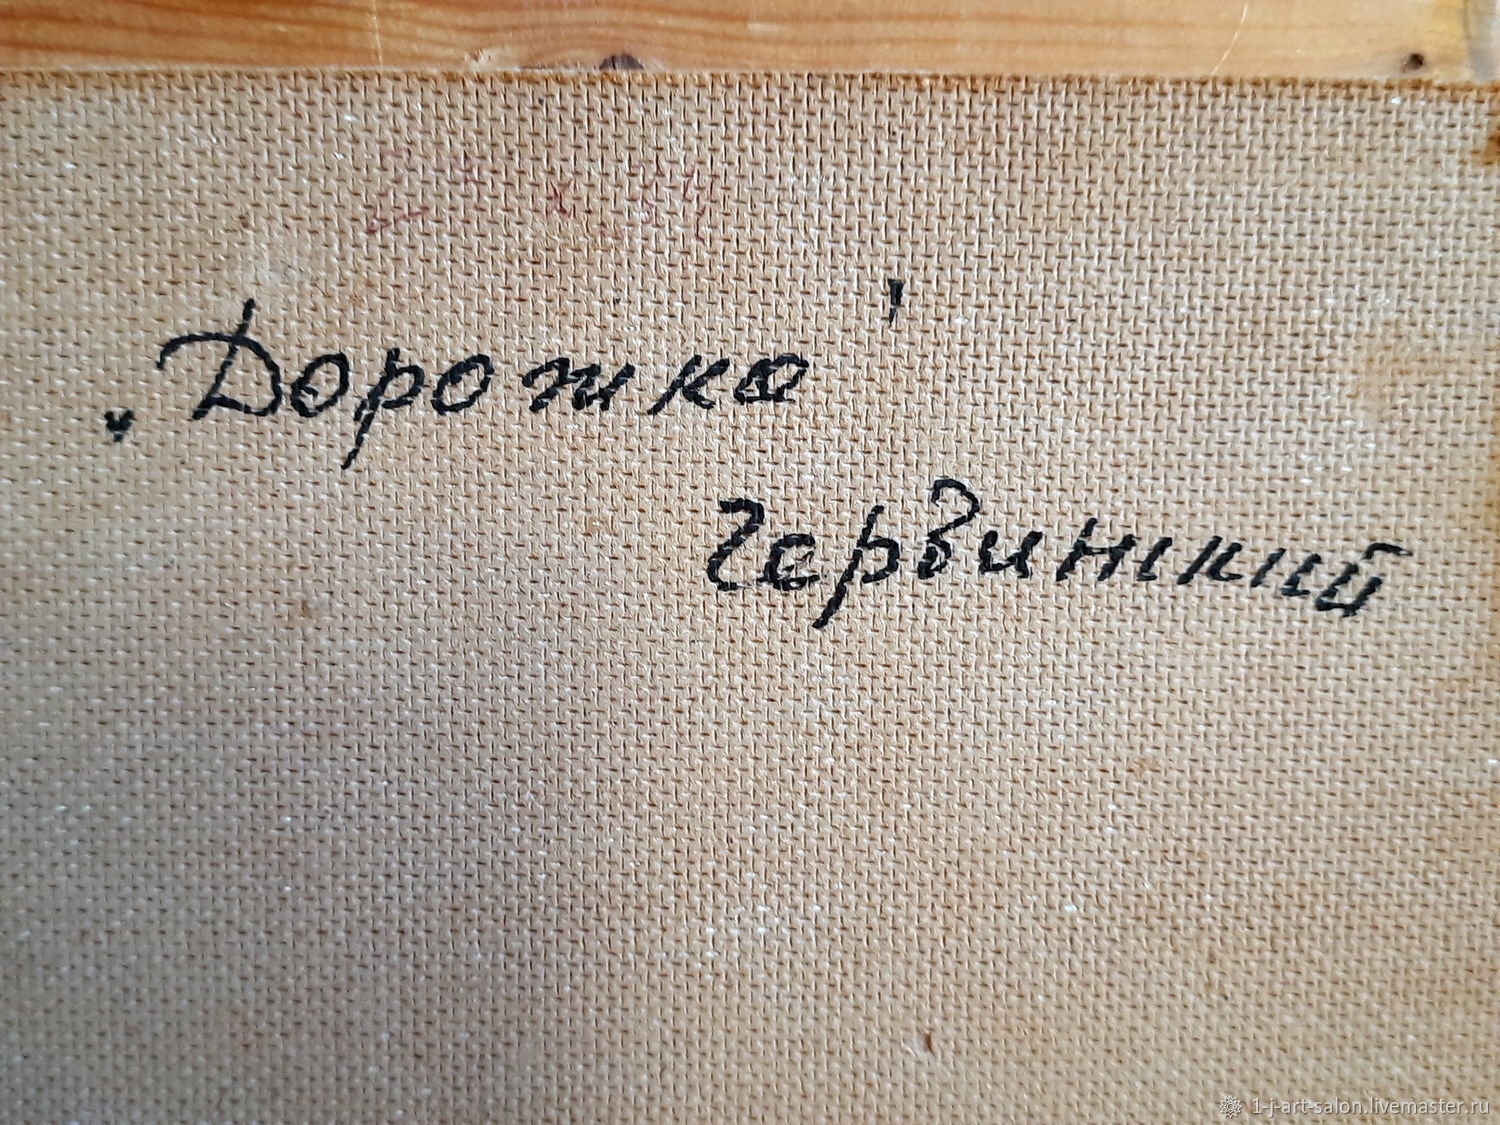 „Дорожка"
Червинский
1-j-art-salon.livemaster.ru